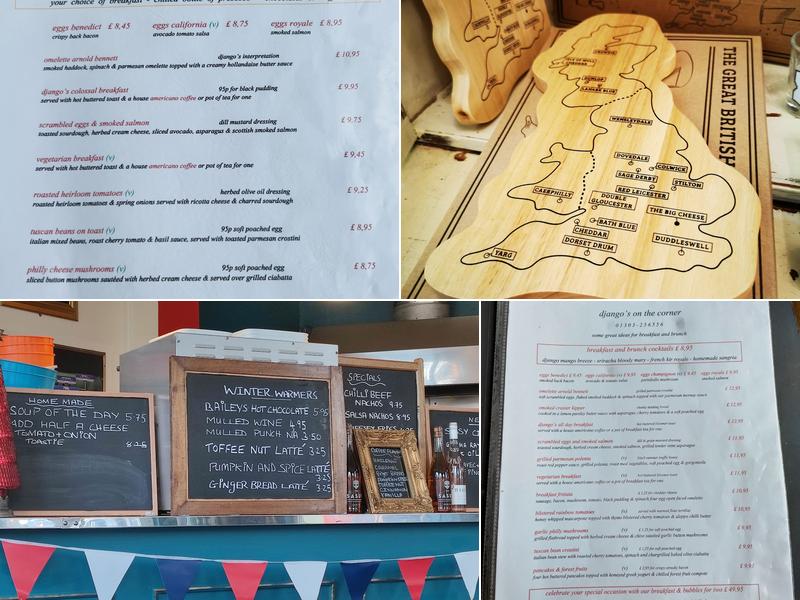 your choice of breakfast
eggs benedict £ 8,45 eggs california (v) £ 8,75 eggs royale £ 8,95
crispy back bacon avocado tomato salsa smoked salmon
omelette arnold bennett django's interpretation £ 10,95
smoked haddock, spinach & parmesan omelette topped with a creamy hollandaise butter sauce
django's colossal breakfast 95p for black pudding £ 9.95
served with hot buttered toast & a house americano coffee or pot of tea for one
scrambled eggs & smoked salmon dill mustard dressing £ 9.75
toasted sourdough, herbed cream cheese, sliced avocado, asparagus & scottish smoked salmon
vegetarian breakfast (v) £ 9,45
served with hot buttered toast & a house americano coffee or pot of tea for one
roasted heirloom tomatoes (v) herbed olive oil dressing £ 9,25
roasted heirloom tomatoes & spring onions served with ricotta cheese & charred sourdough
tuscan beans on toast (v) 95p soft poached egg £ 8,95
italian mixed beans, roast cherry tomato & basil sauce, served with toasted parmesan crostini
philly cheese mushrooms (v) 95p soft poached egg £ 8,75
sliced button mushrooms sautéed with herbed cream cheese & served over grilled ciabatta
THE GREAT BRITISH
CROWDIE
ISLE OF MULL
CHEDDAR
DUNLOP
LANARK BLUE
WENSLEYDALE
DOVEDALE
COLWICK
SAGE DERBY
STILTON
RED LEICESTER
CAERPHILLY
DOUBLE
GLOUCESTER
THE BIG CHEESE
BATH BLUE
CHEDDAR
DORSET DRUM
DUDDLESWELL
YARG
HOME MADE
SOUP OF THE DAY 5.75
ADD HALF A CHEESE
TOMATO + ONION
TOASTIE 8.25
WINTER WARMERS
BAILEYS HOT CHOCOLATE 5.95
MULLED WINE 4.95
MULLED PUNCH NA 3.50
TOFFEE NUT LATTE 3.25
PUMPKIN AND SPICE LATTE
3.25
GINGER BREAD LATTE 3.25
SPECIALS
CHILLI BEEF
NACHOS 9.75
SALSA NACHOS 8.95
VANILLA
django's on the corner
01303-256556
some great ideas for breakfast and brunch
breakfast and brunch cocktails £ 8,95
django mango breeze - sriracha bloody mary - french kir royale - homemade sangria
eggs benedict £ 9.45 eggs california (v) £ 9.95 eggs champignon (v) £ 9.45 eggs royale £ 9.95
smoked back bacon avocado & tomato salsa portobello mushroom smoked salmon
omelette arnold bennett £ 12,95
smoked craster kipper £ 12,95
django's all day breakfast £ 12,95
scrambled eggs and smoked salmon £ 11.95
grilled parmesan polenta (v) £ 11,95
vegetarian breakfast (v) £ 11,95
breakfast frittata £ 10,95
blistered rainbow tomatoes (v) £ 10,95
garlic philly mushrooms (v) £ 9,95
tuscan bean crostini (v) £ 9,95
pancakes & forest fruits (v)
four hot buttered pancakes topped with honeyed greek yogurt & chilled forest fruit compote
celebrate your special occasion with our breakfast & bubbles for two £ 49,95